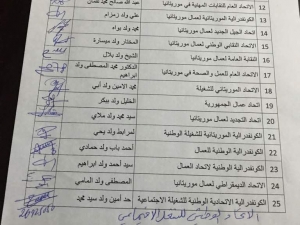 12 الاتحاد العام للنقابات المهنية في موريتانيا عبد الله صالح محمد
13 الكونفدرالية الموريتانية لعمال موريتانيا علي ولد زمزام
14 اتحاد الجيل الجديد لعمال موريتانيا محمد ولد بواه
15 الاتحاد النقابي الوطني لعمال موريتانيا المختار ولد ميسارة
16 النقابة العامة لعمال موريتانيا الشيخ ولد بلال
17 الاتحاد العام للعمل والصحة في موريتانيا الدكتور محمد المصطفى ولد ابراهيم
18 الاتحاد الموريتاني للشغيلة محمد الامين ولد أبي
19 اتحاد عمال الجمهورية الخليل ولد بيكر
20 اتحاد التجديد لعمال موريتانيا سيد محمد ولد ملاي
21 الكونفدرالية الموريتانية للشغيلة الوطنية لمرابط ولد يخي
22 الكونفدرالية الوطنية للشغيلة أحمد باب ولد حمادي
23 الكونفدرالية الوطنية لاتحاد العمال سيد أحمد ولد ابراهيم
24 الاتحاد الديمقراطي لعمال موريتانيا المصطفى ولد المامي
25 الكونفدرالية الاتحادية الوطنية للشغيلة الاجتماعية حد أمين ولد سيد محمد